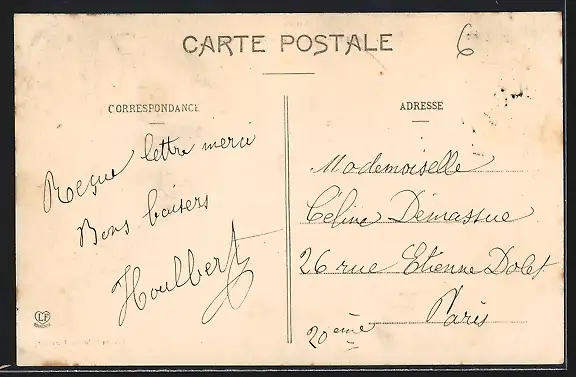 CARTE POSTALE
6
CORRESPONDANCE
Reçue lettre merci
Bons baisers
Houlbert
ADRESSE
Mademoiselle
Céline Demassue
26 rue Etienne Dolet
Paris
20ème
LF